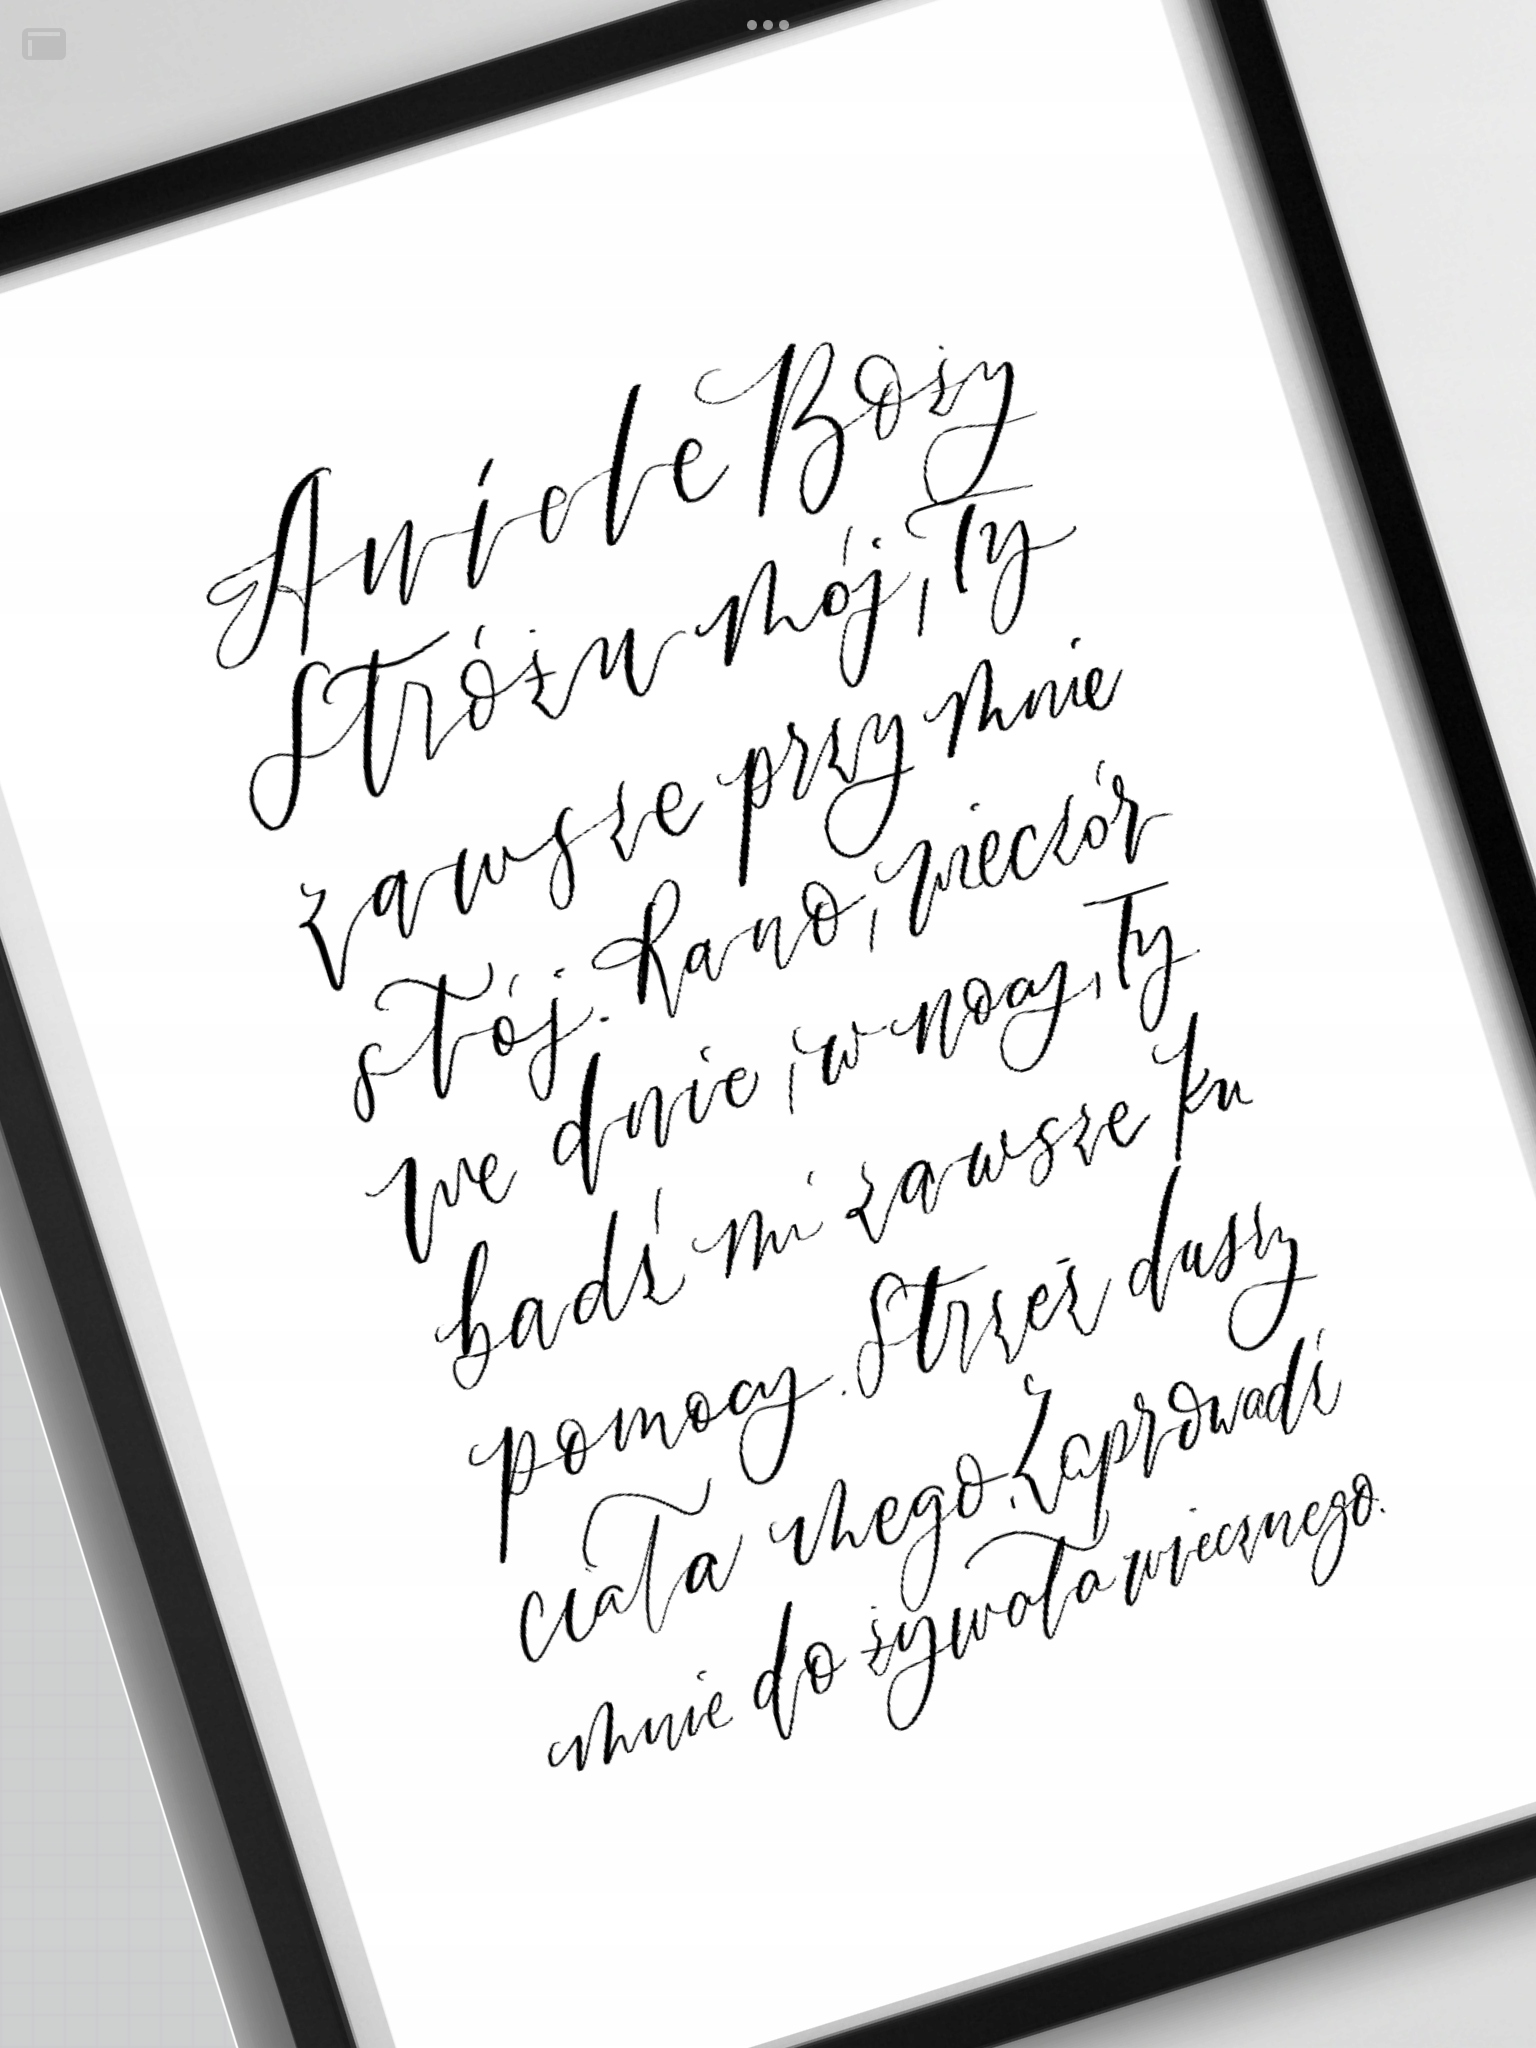 Aniele Boży
Stróżu mój, Ty
zawsze przy mnie
stój. Rano, wieczór
we dnie, w nocy, Ty
badź mi zawsze ku
pomocy. Strzeż duszy
ciała mego. Zaprowadź
mnie do żywota wiecznego.